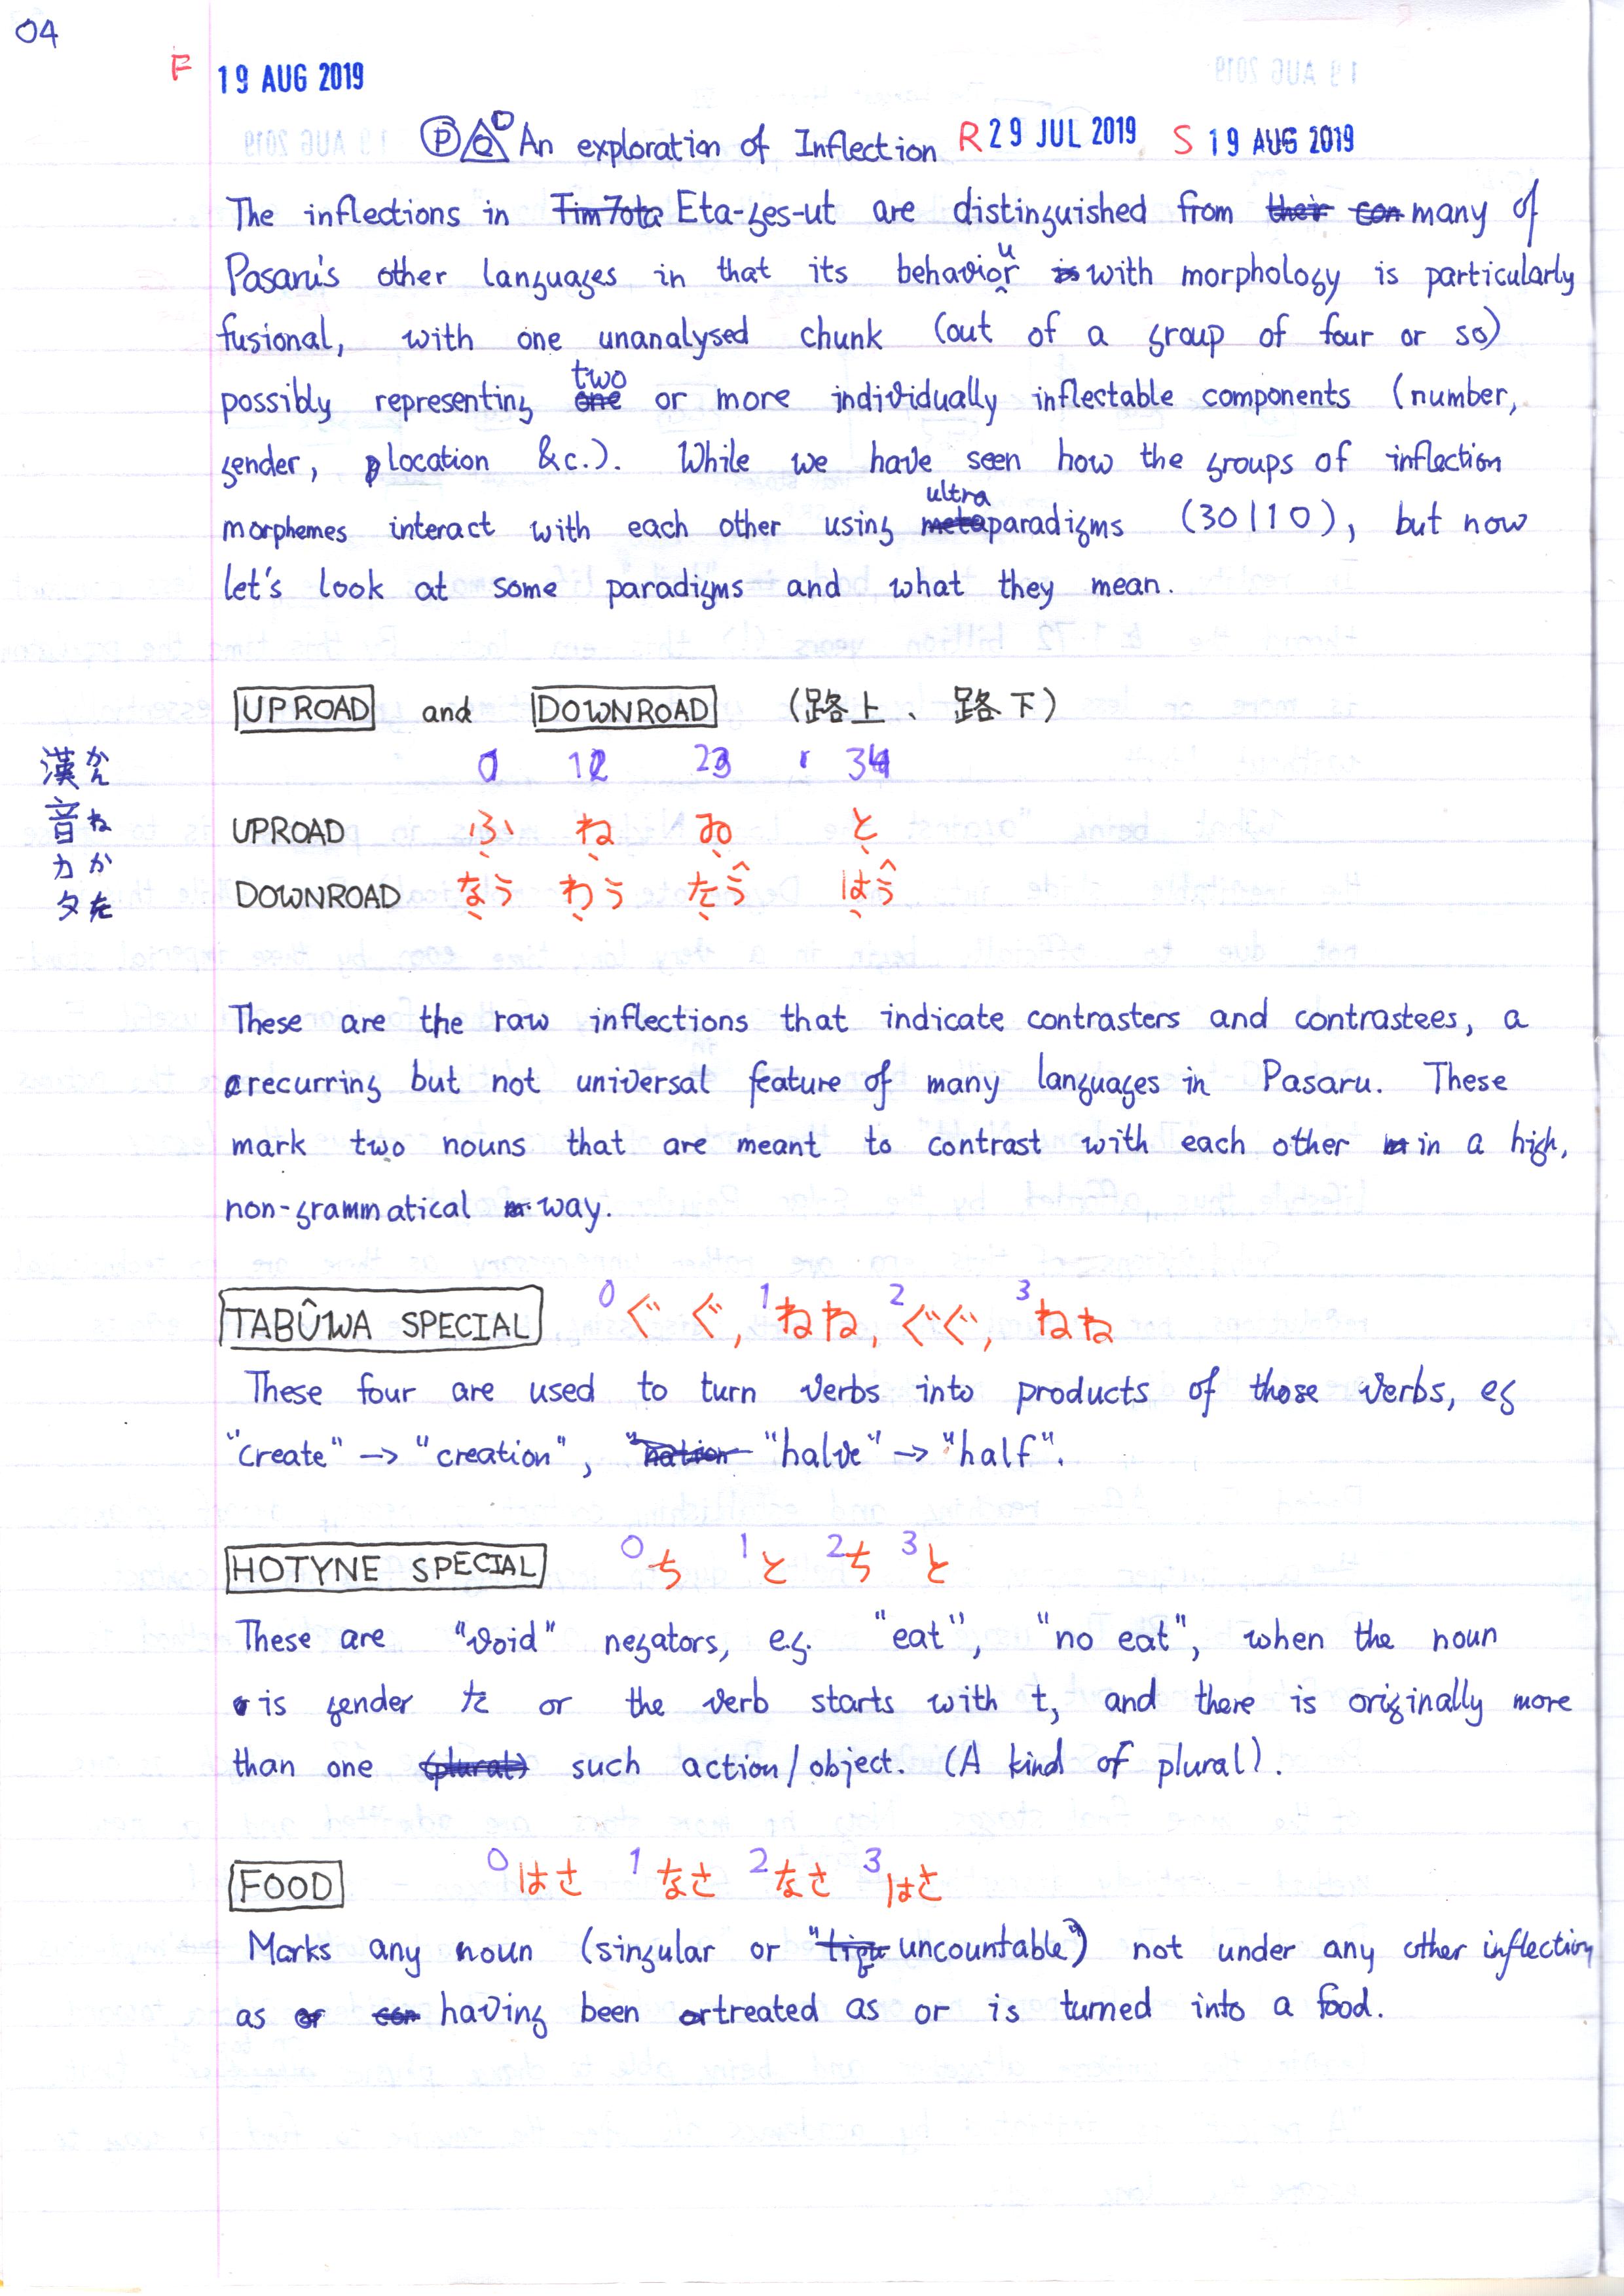 04
F 19 AUG 2019
P Q An exploration of Inflection R 29 JUL 2019 S 19 AUG 2019
The inflections in Tim7ota Eta-ges-ut are distinguished from their con many of
Pasaru's other languages in that its behaviour is with morphology is particularly
fusional, with one unanalysed chunk (out of a group of four or so)
possibly representing one two or more individually inflectable components (number,
gender, location &c.). While we have seen how the groups of inflection
morphemes interact with each other using meta ultraparadigms (30|10), but now
let's look at some paradigms and what they mean.
UPROAD and DOWNROAD (路上、路下)
0 1 2 3
UPROAD ふ ね ゐ と
DOWNROAD なう わう たう はう
漢音カタ
かんねかを
These are the raw inflections that indicate contrasters and contrastees, a
recurring but not universal feature of many languages in Pasaru. These
mark two nouns that are meant to contrast with each other in a high,
non-grammatical way.
TABÛWA SPECIAL 0 ぐぐ, 1 ねね, 2 ぐぐ, 3 ねね
These four are used to turn verbs into products of those verbs, eg
"create" → "creation", "nation "halve" → "half".
HOTYNE SPECIAL 0 ち 1 と 2 ち 3 と
These are "void" negators, e.g. "eat", "no eat", when the noun
is gender た or the verb starts with t, and there is originally more
than one (plural) such action/object. (A kind of plural).
FOOD 0 はさ 1 なさ 2 なさ 3 はさ
Marks any noun (singular or "uncountable") not under any other inflection
as or con having been or treated as or is turned into a food.